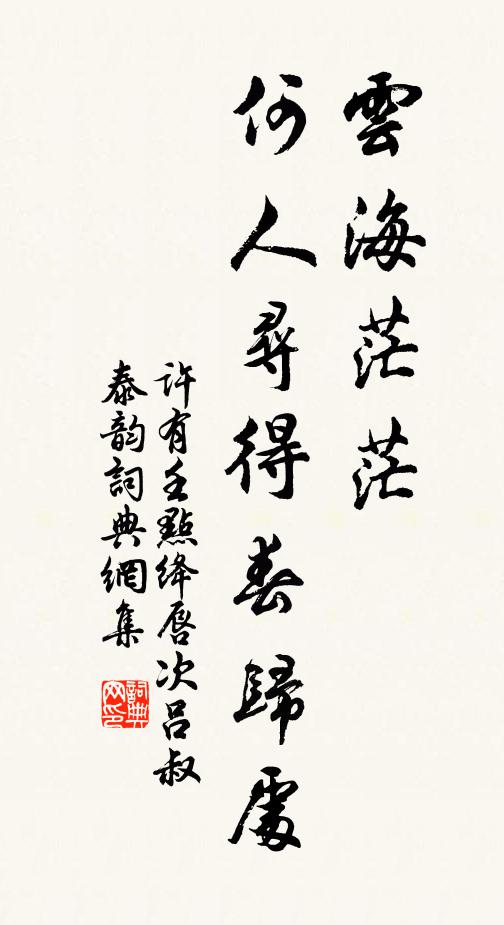 雲海茫茫
何人尋得春歸處
許有壬點絳唇次呂叔
泰韵詞典網集
詞典網印